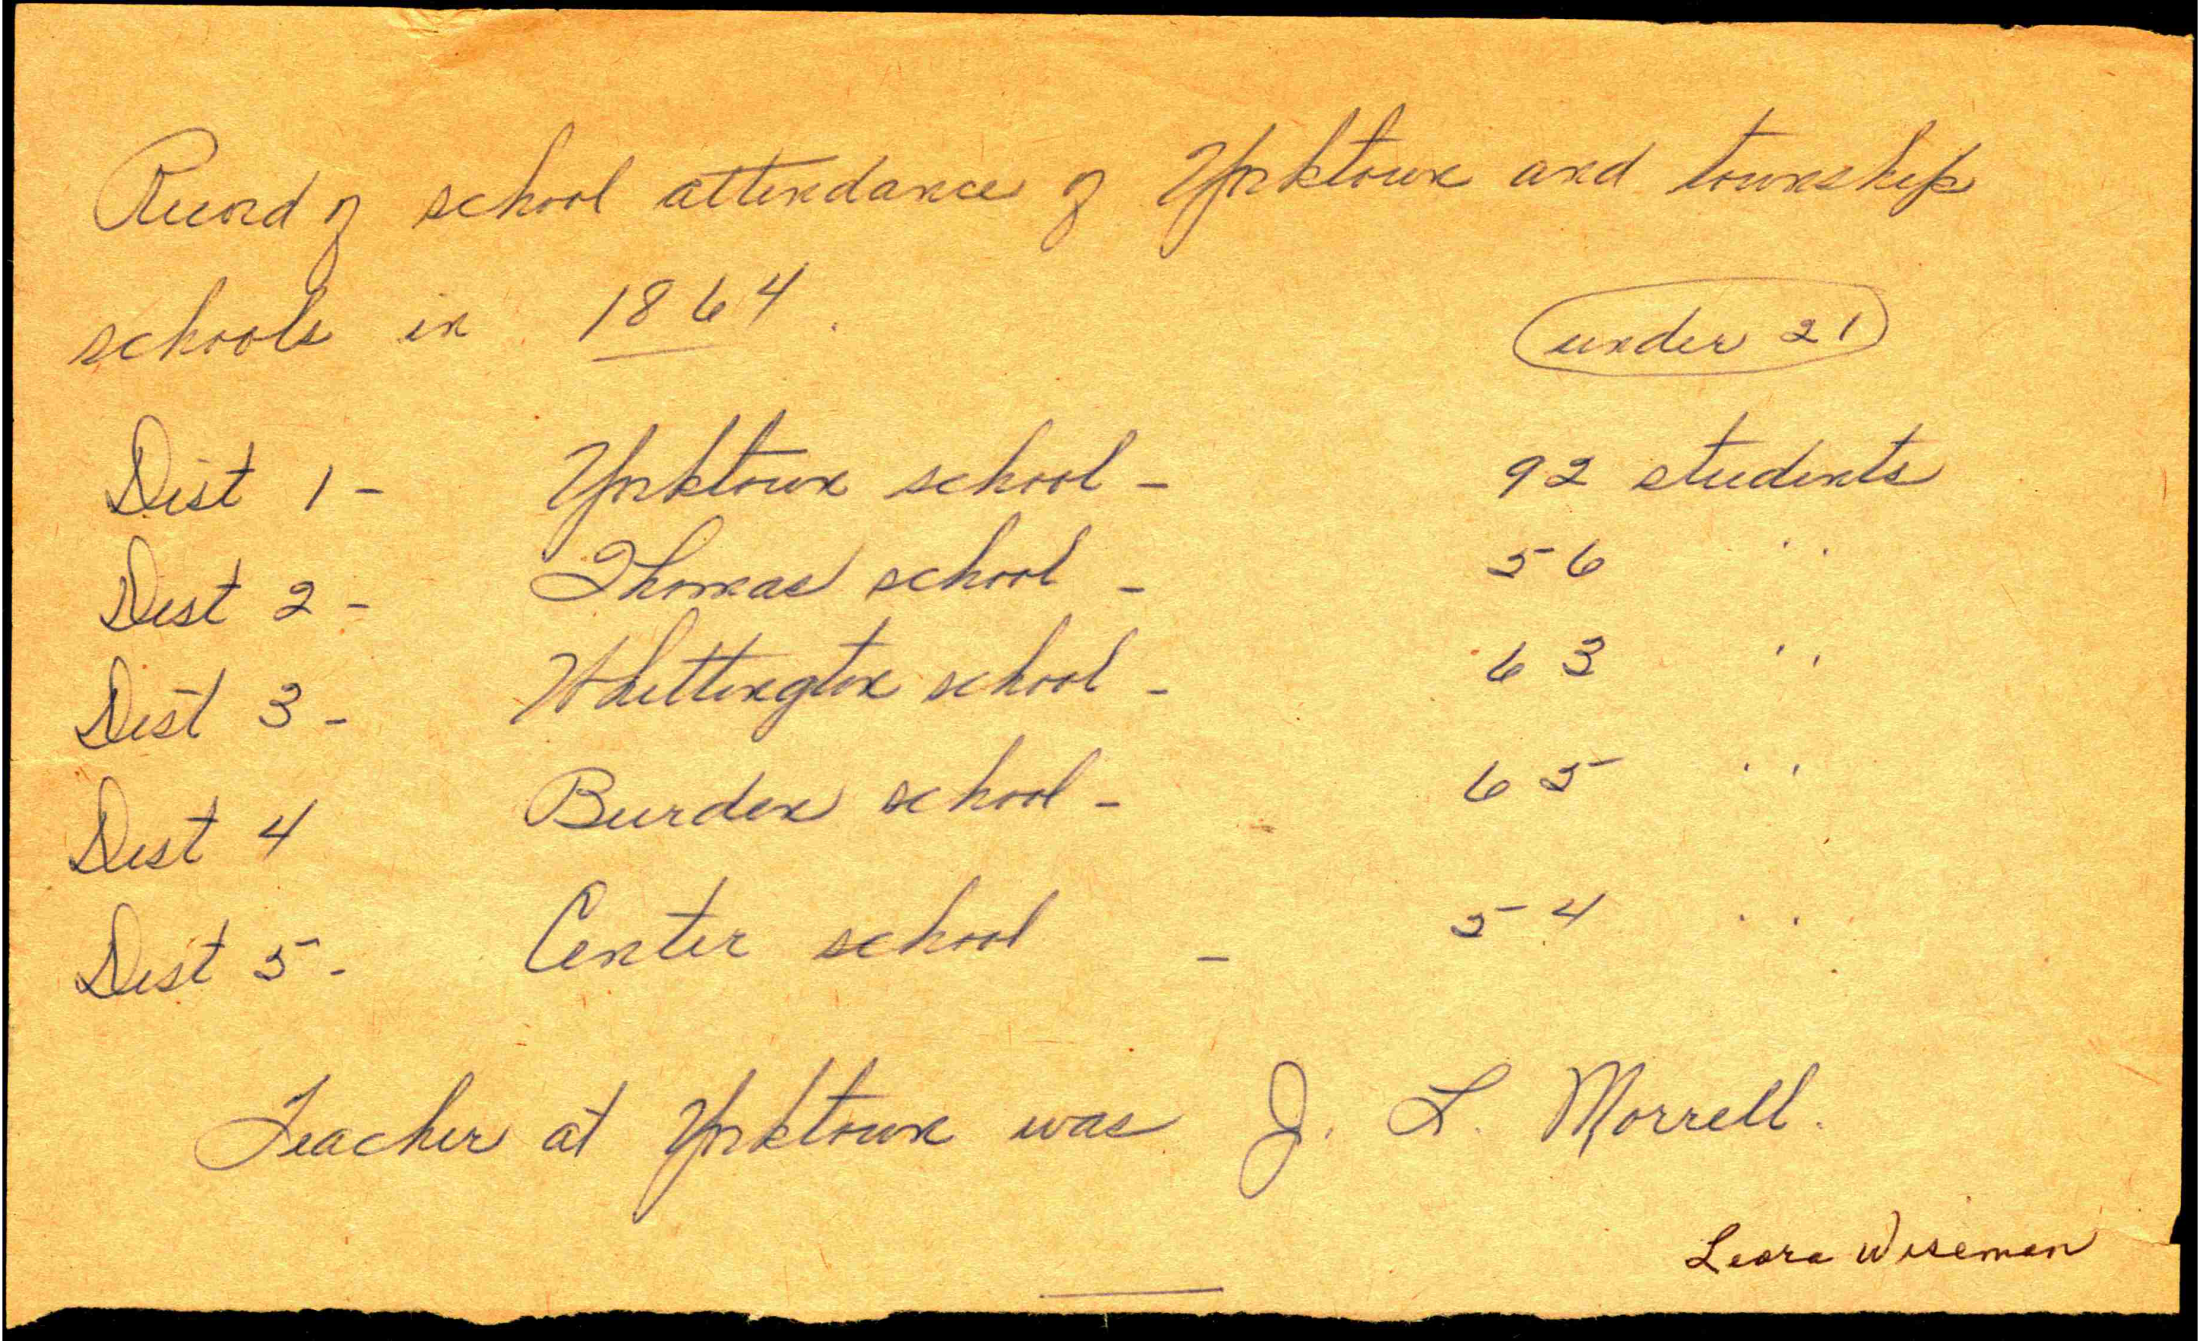 Record of school attendance of Yorktown and township
schools in 1864.
under 21
Dist 1 - Yorktown school - 92 students
Dist 2 - Thomas school - 56 "
Dist 3 - Whittington school - 63 "
Dist 4 Burden school - 65 "
Dist 5 - Center school - 54 "
Teacher at Yorktown was J. L. Morrell.
Leora Wiseman